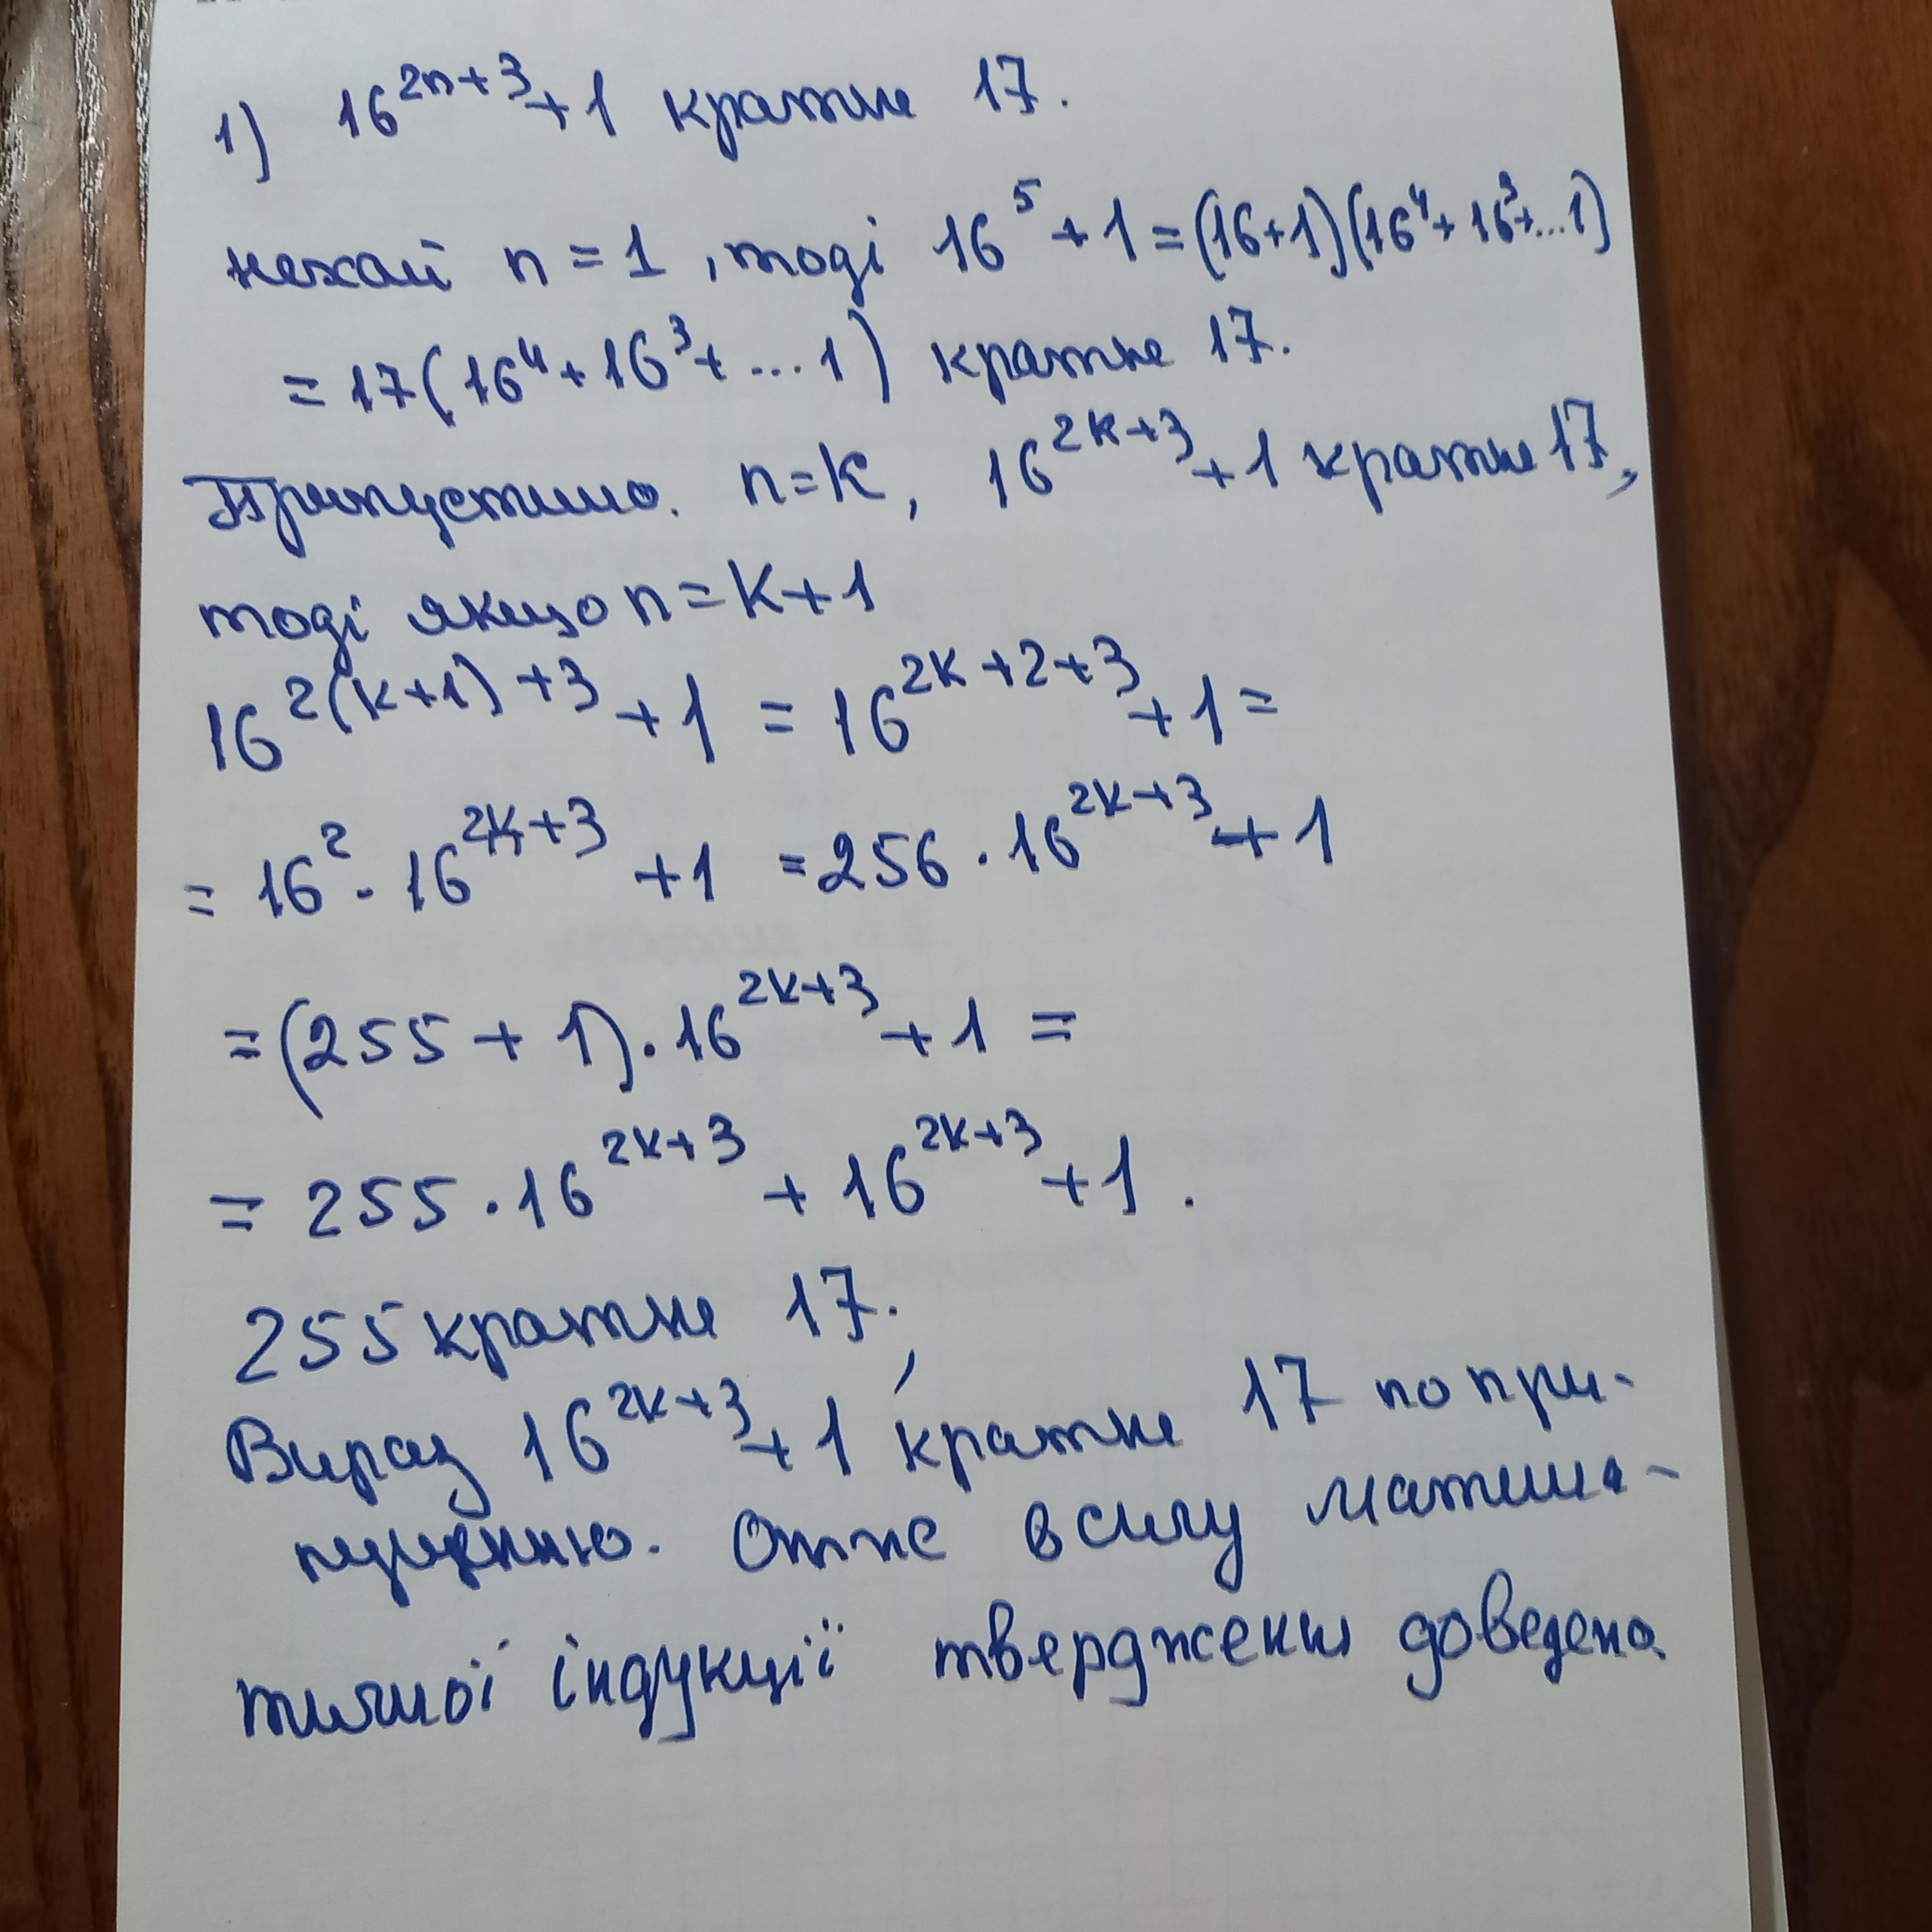 1) 16^{2n+3}+1 кратне 17.
нехай n=1, тоді 16^5+1=(16+1)(16^4+16^3+...1)
=17(16^4+16^3+...1) кратне 17.
Припустимо. n=k, 16^{2k+3}+1 кратне 17,
тоді якщо n=k+1
16^{2(k+1)+3}+1=16^{2k+2+3}+1=
=16^2·16^{2k+3}+1=256·16^{2k+3}+1
=(255+1)·16^{2k+3}+1=
=255·16^{2k+3}+16^{2k+3}+1.
255 кратне 17.,
Вираз 16^{2k+3}+1 кратне 17 по при-
пущенню. Отже в силу матема-
тичної індукції твердження доведено.